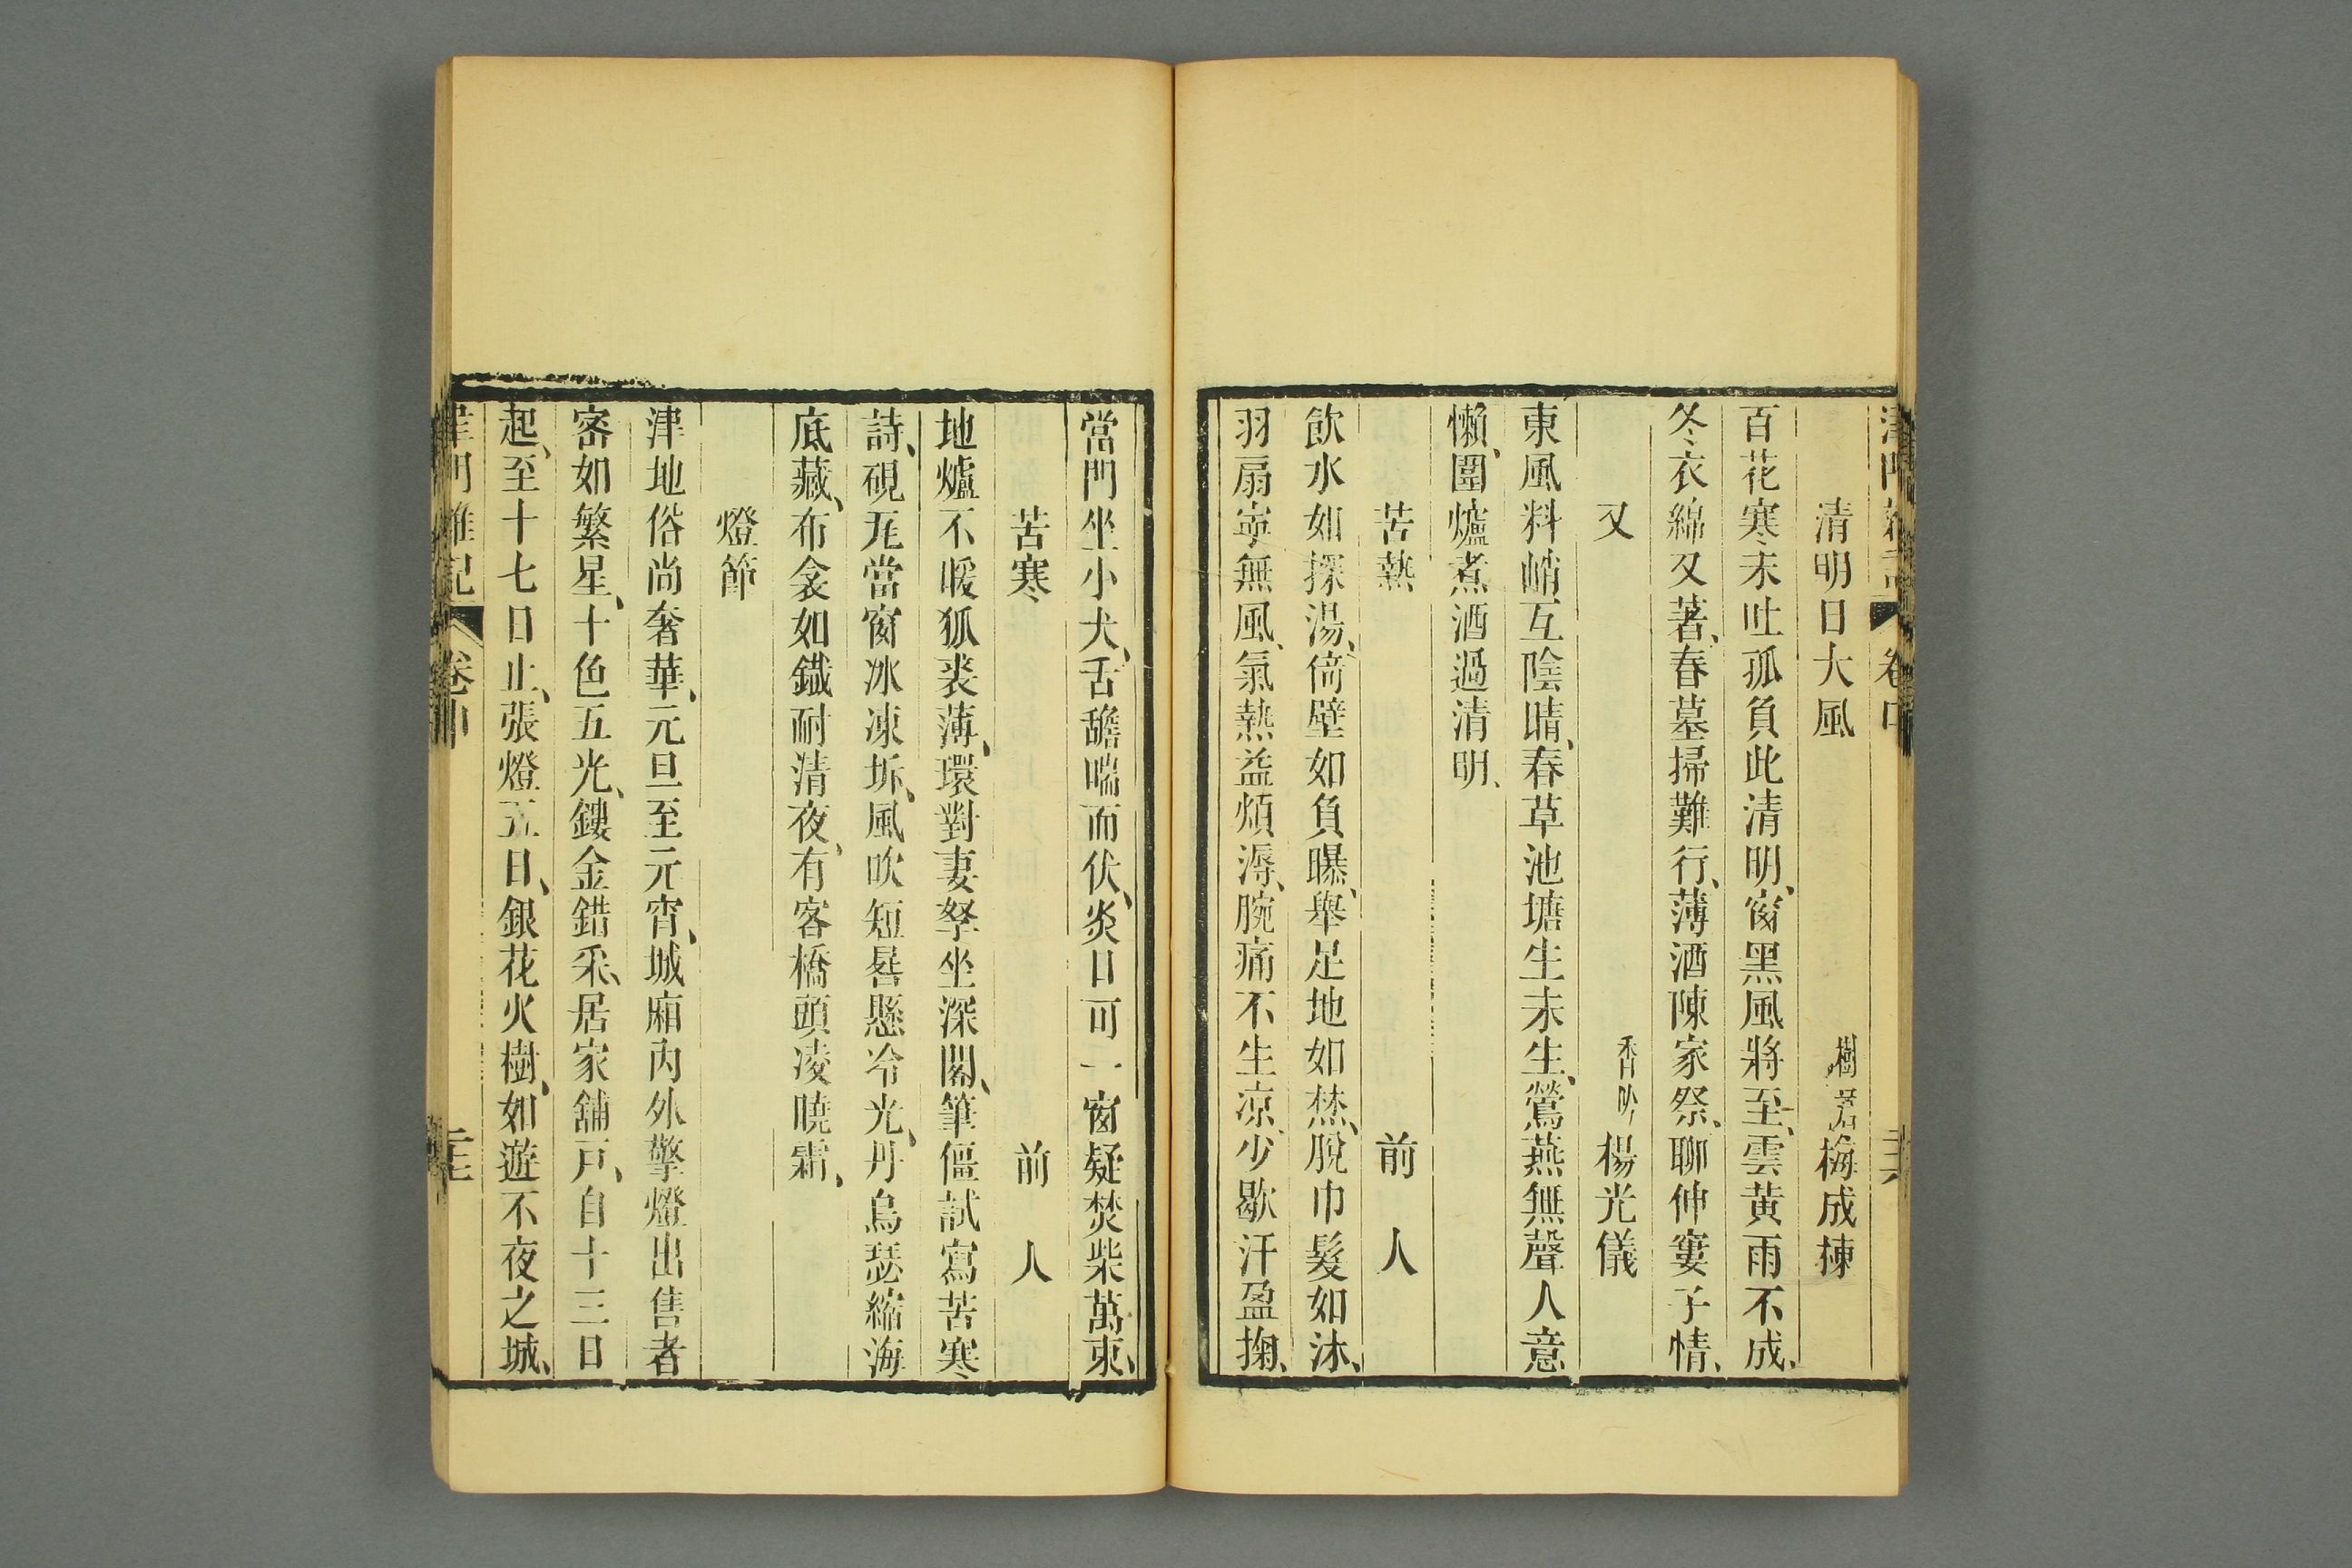 清明日大風　樹君梅成棟
百花寒未吐孤負此清明、窗黑風將至、雲黄雨不成、
冬衣綿又著、春墓掃難行、薄酒陳家祭、聊伸窶子情、
又　香吟楊光儀
東風料峭互陰晴、春草池塘生未生、鶯燕無聲人意
懶、圍爐煮酒過清明、
苦熱　前人
飲水如探湯、倚壁如負曝、舉足地如焚、脫巾髮如沐、
羽扇寧無風、氣熱益煩溽、腕痛不生涼、少歇汗盈掬、
當門坐小犬、舌舚喘而伏、炎日可一窗疑焚柴萬束、
苦寒　前人
地爐不暖狐裘薄、環對妻孥坐深閣、筆僵試寫苦寒
詩、硯凭當窗冰凍坼、風吹短晷懸冷光、丹烏瑟縮海
底藏、布衾如鐵耐清夜、有客橋頭凌曉霜、
燈節
津地俗尚奢華、元旦至元宵、城廂內外擎燈出售者
密如繁星、十色五光、鏤金錯采、居家舖戶、自十三日
起、至十七日止、張燈五日、銀花火樹、如遊不夜之城、
津門雜記　卷中